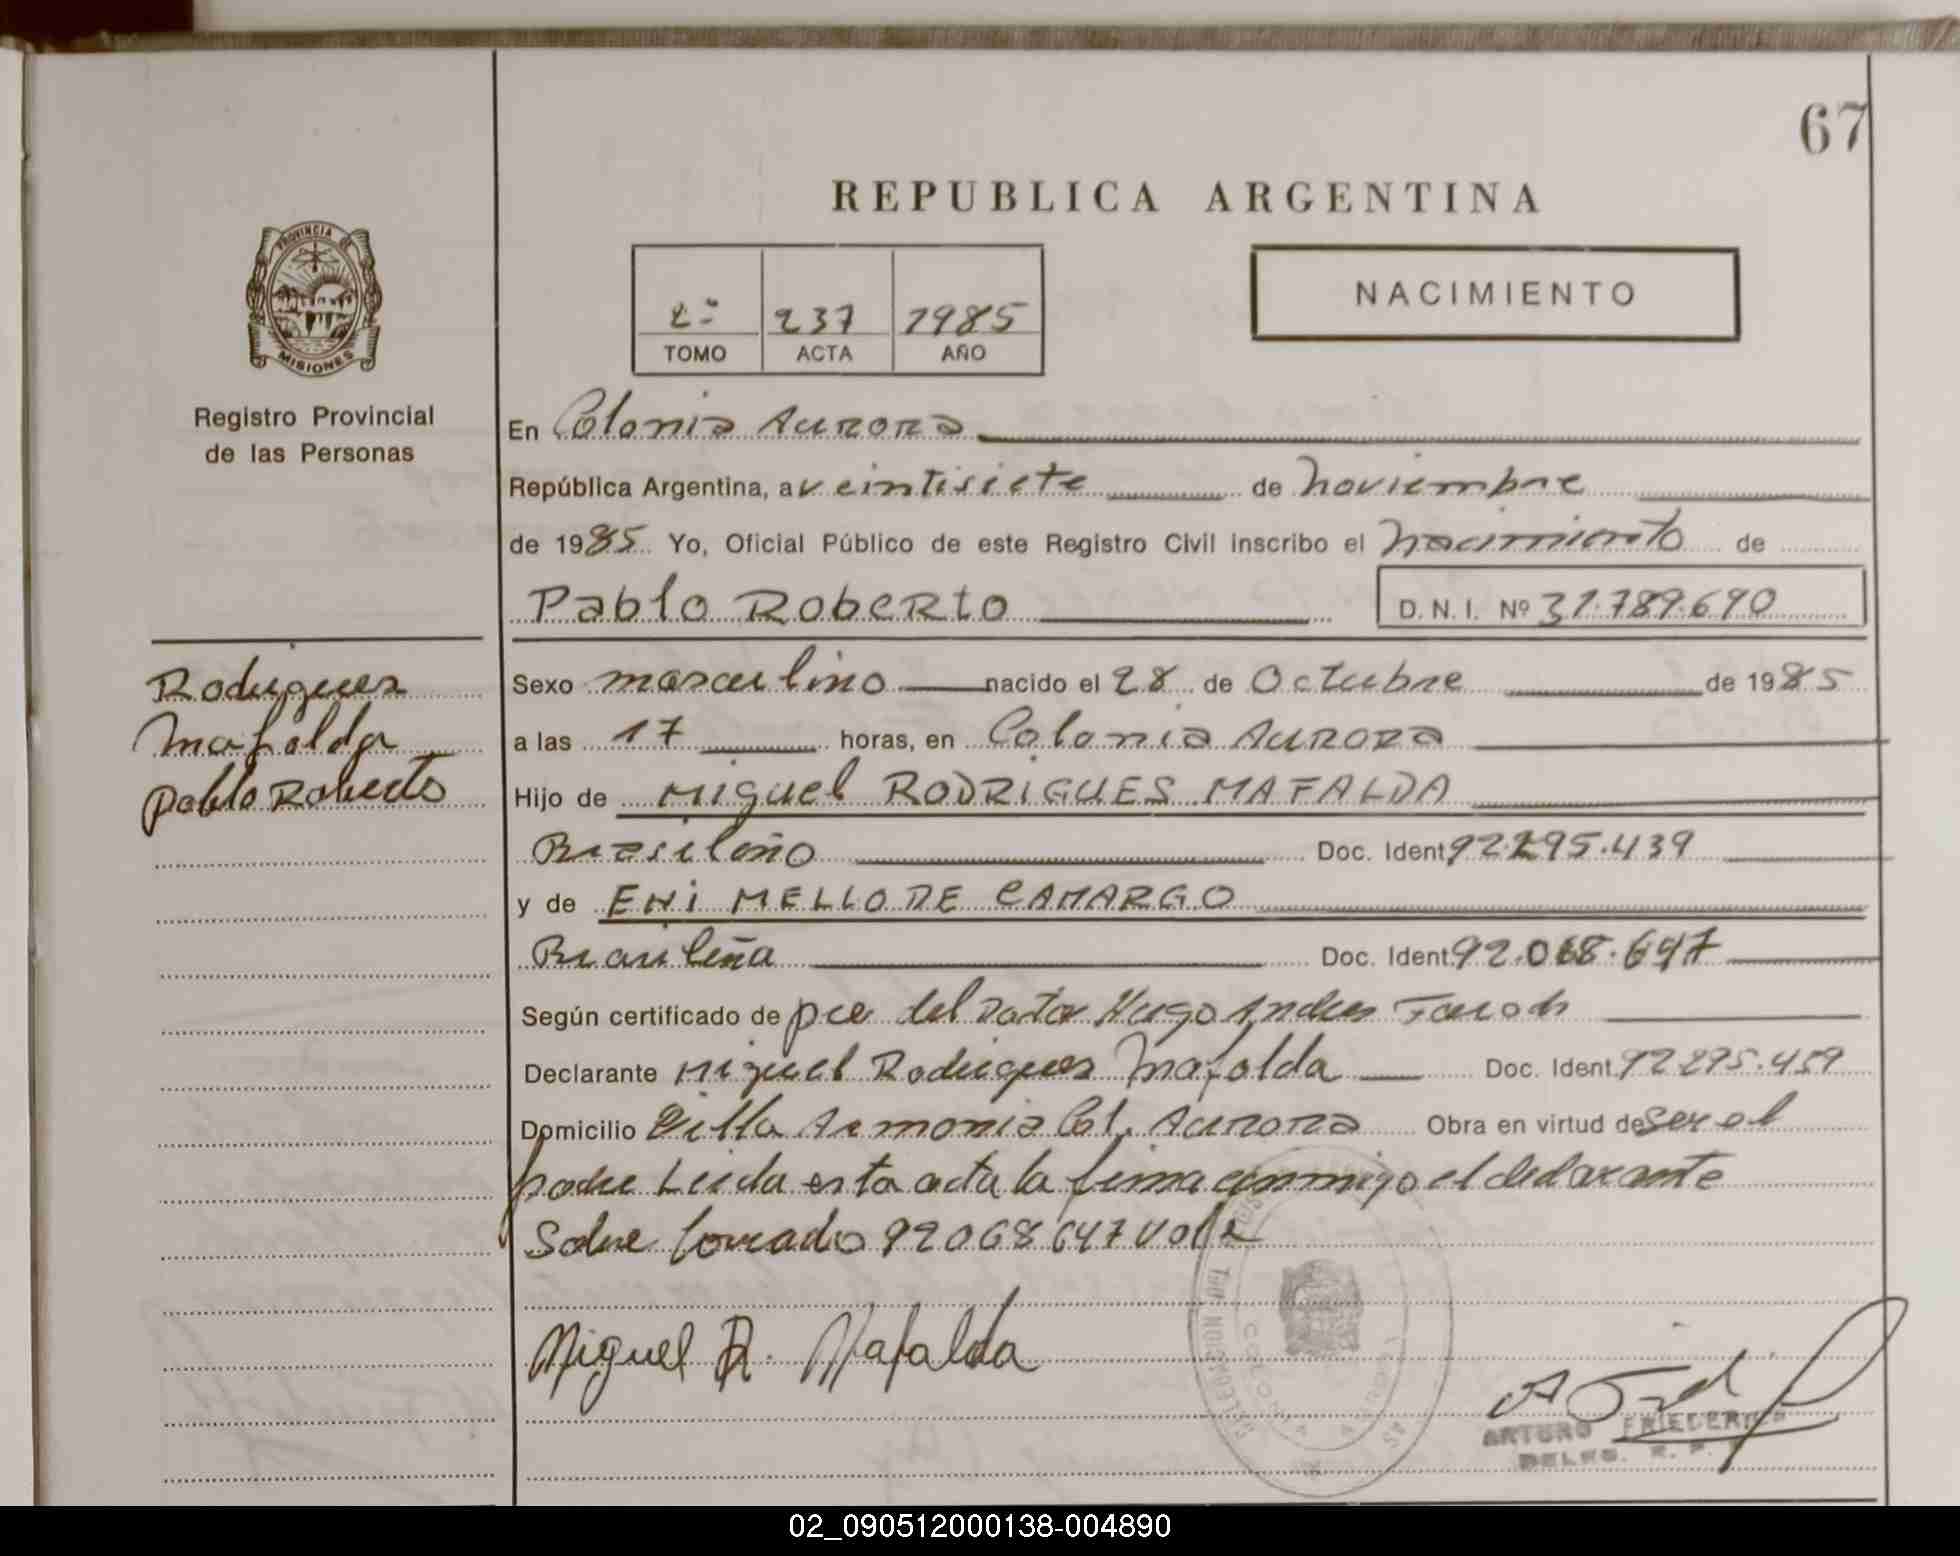 67
REPUBLICA ARGENTINA
PROVINCIA DE
MISIONES
Registro Provincial
de las Personas
2º 237 1985
TOMO ACTA AÑO
NACIMIENTO
En Colonia Aurora
República Argentina, a veintisiete de noviembre
de 1985 Yo, Oficial Público de este Registro Civil inscribo el nacimiento de
Pablo Roberto D.N.I. Nº 31.789.690
Rodrigues
Mafalda
Pablo Roberto
Sexo masculino nacido el 28 de Octubre de 1985
a las 17 horas, en Colonia Aurora
Hijo de Miguel RODRIGUES MAFALDA
Brasileño Doc. Ident. 92.295.439
y de ENI MELLO DE CAMARGO
Brasileña Doc. Ident. 92.068.647
Según certificado de pce del Doctor Hugo Andres
Declarante Miguel Rodrigues Mafalda Doc. Ident. 92295.459
Domicilio Villa Armonia Col. Aurora Obra en virtud de ser el
padre Leida esta acta la firma conmigo el declarante
Sobre borrado 92068647 vale
Miguel R. Mafalda
ARTURO FRIEDERICH
DELEG. R. P.
02_090512000138-004890